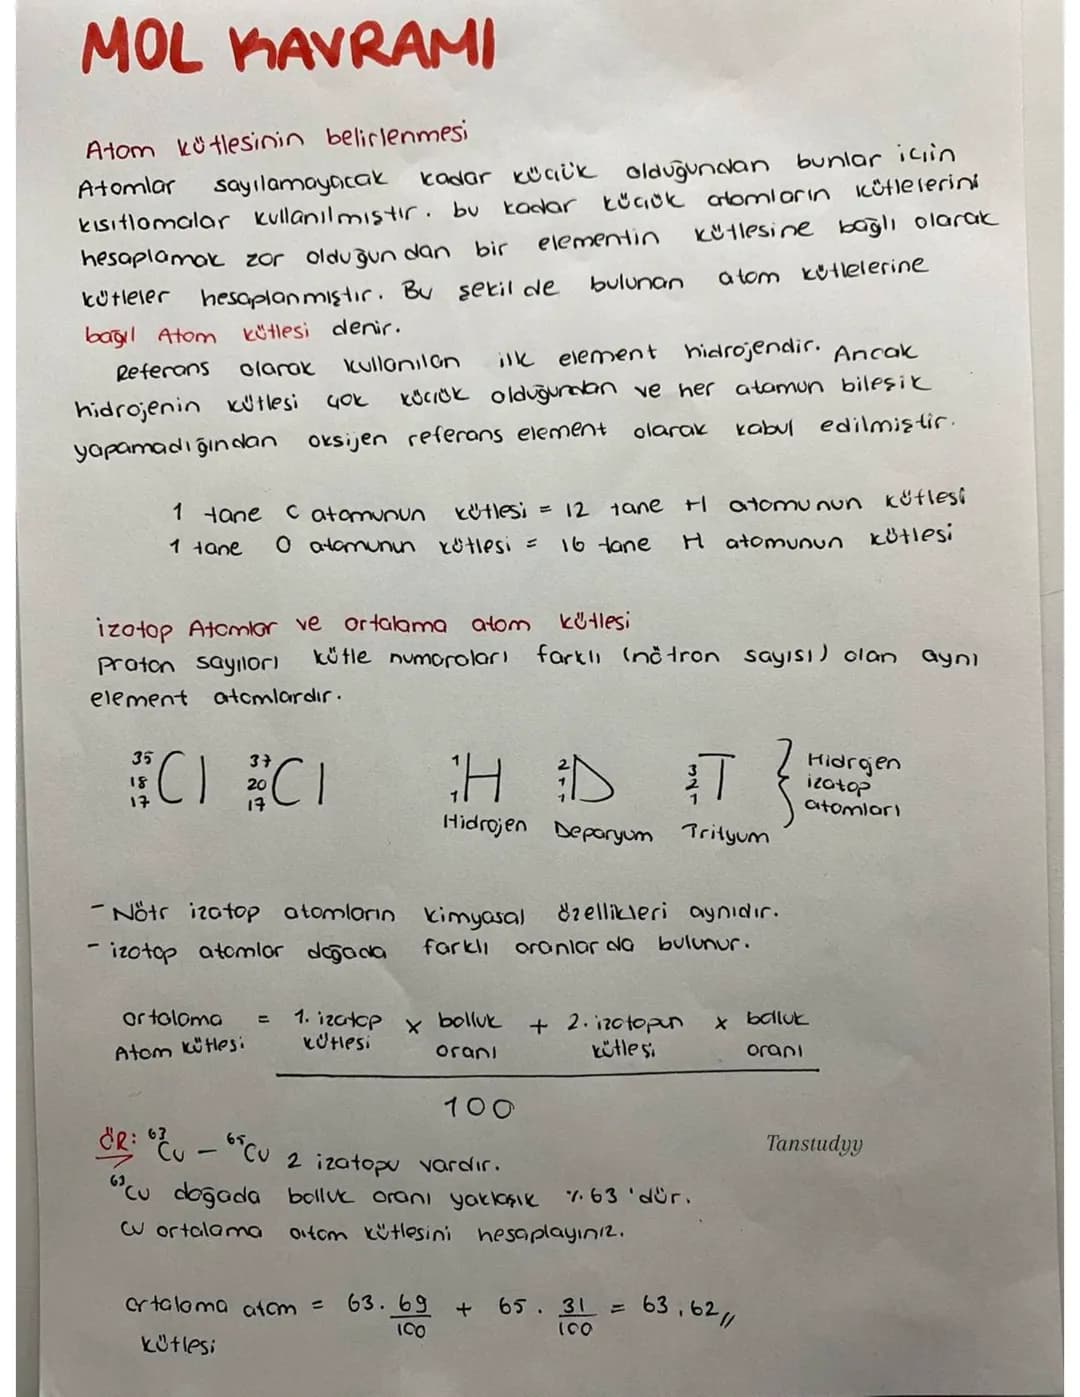 MOL KAVRAMI
Atom kütlesinin belirlenmesi
Atomlar sayılamayacak kadar küçük olduğundan bunlar için
kısıtlamalar kullanılmıştır. bu kadar küçük atomların kütlelerini
hesaplamak zor olduğun dan bir elementin kütlesine bağlı olarak
kütleler hesaplanmıştır. Bu şekil de bulunan atom kütlelerine
bağıl Atom kütlesi denir.
Referans olarak kullanılan ilk element hidrojendir. Ancak
hidrojenin kütlesi çok küçük olduğundan ve her atamun bileşik
yapamadığından oksijen referans element olarak kabul edilmiştir.
1 tane C atomunun kütlesi = 12 tane H atomunun kütlesi
1 tane O atomunun kütlesi = 16 tane H atomunun kütlesi
izotop Atomlar ve ortalama atom kütlesi
Proton sayıları kütle numaraları farklı (nötron sayısı) olan aynı
element atomlardır.
35 18 17 Cl 37 20 17 Cl 1 1 H 2 1 1 D 3 2 1 T } Hidrojen izotop atomları
Hidrojen Deporyum Trityum
- Nötr izotop atomların kimyasal özellikleri aynıdır.
- izotop atomlar doğada farklı oranlar da bulunur.
ortalama Atom kütlesi = 1. izotop kütlesi x bolluk oranı + 2. izotopun kütlesi x bolluk oranı
100
ÖR: 63Cu - 65Cu 2 izotopu vardır.
63Cu doğada bolluk oranı yaklaşık %63'dür.
Cu ortalama atom kütlesini hesaplayınız.
ortalama atom kütlesi = 63. 69/100 + 65. 31/100 = 63,62//
Tanstudyy